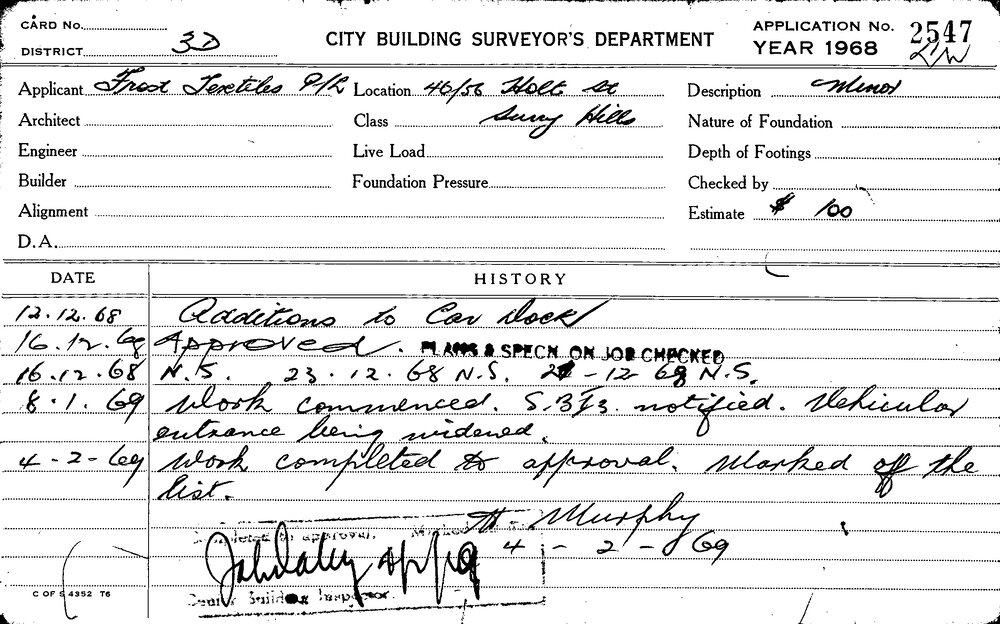 CARD No.
DISTRICT 3D
CITY BUILDING SURVEYOR'S DEPARTMENT
APPLICATION No. 2547
YEAR 1968
Applicant Frost Textiles P/L Location 46/56 Holt St Description Minor
Architect Class Surry Hills Nature of Foundation
Engineer Live Load Depth of Footings
Builder Foundation Pressure Checked by
Alignment Estimate $ 100
D.A.
DATE HISTORY
12.12.68 Additions to Car Dock
16.12.68 Approved. PLANS & SPECN ON JOB CHECKED
16.12.68 N.S. 23.12.68 N.S. 27-12 68 N.S.
8.1.69 Work commenced. notified. Vehicular
entrance being widened.
4-2-69 Work completed to approval. Marked off the
list.
Murphy
Completed to approval. Marked
4-2-69
Senior Building Inspector.
C OF S 4352 T6